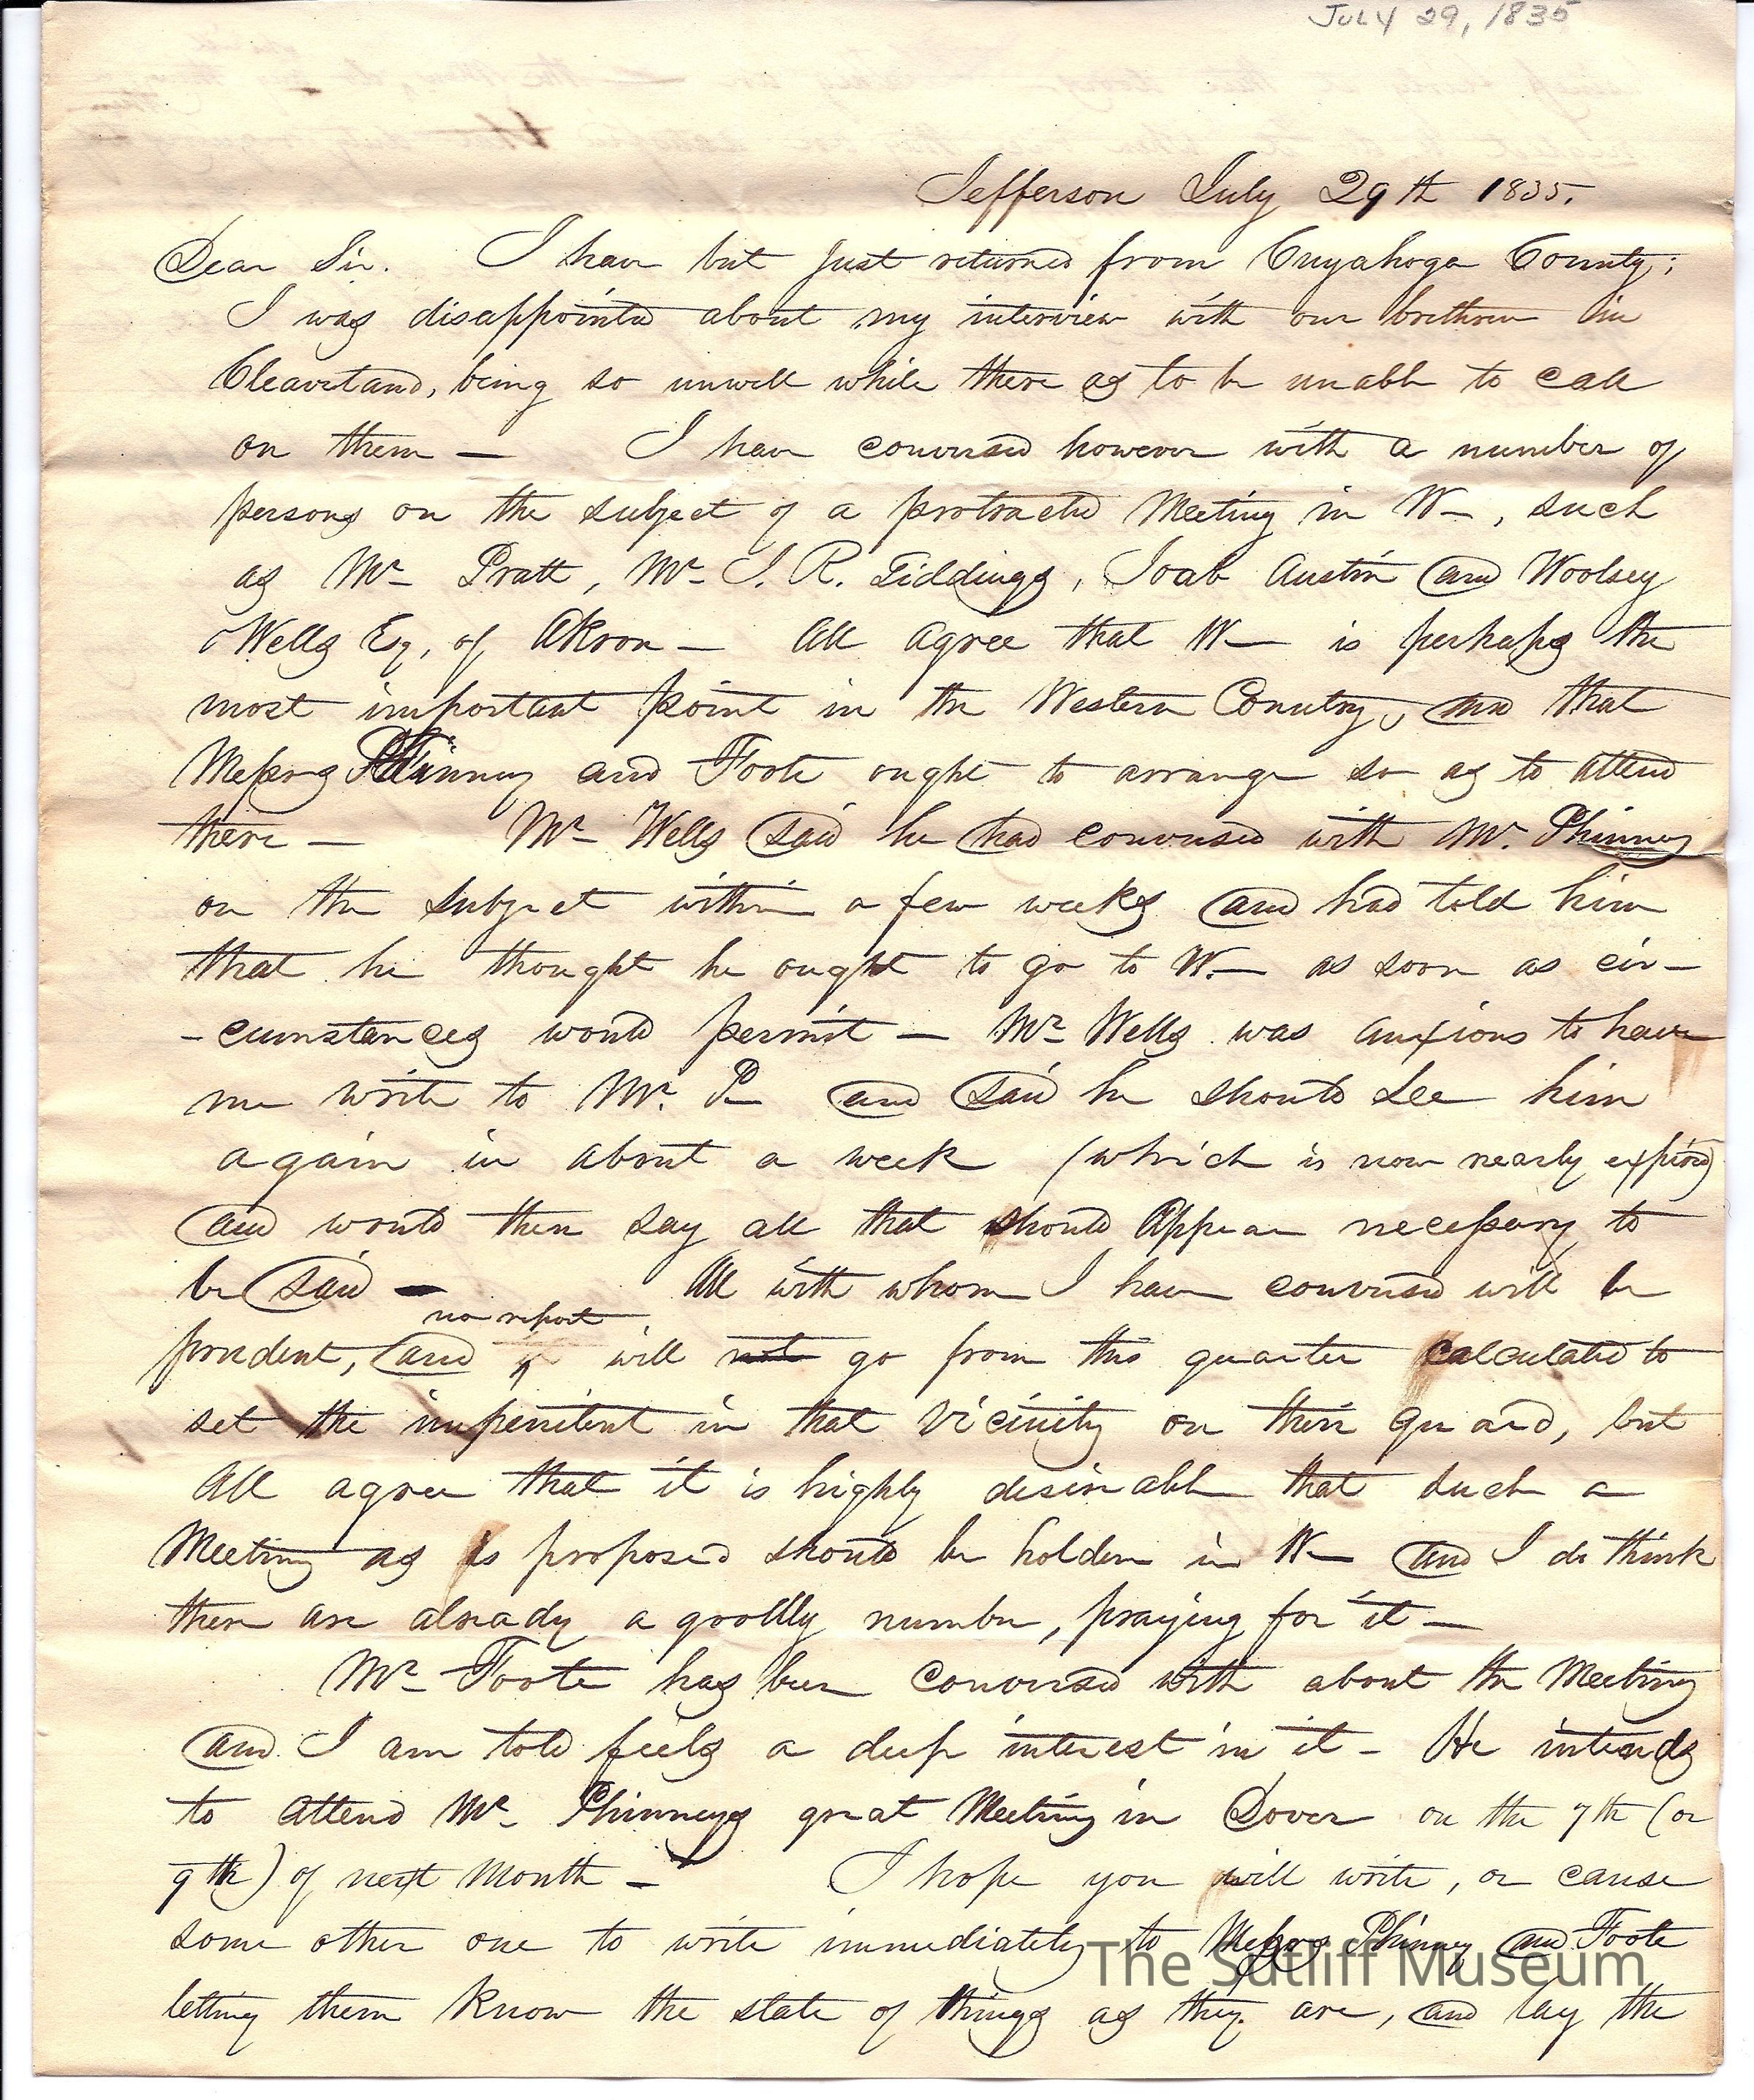 JULY 29, 1835
Jefferson July 29th 1835.
Dear Sir. I have but just returned from Cuyahoga County;
I was disappointed about my interview with our brethren in
Cleaveland, being so unwell while there as to be unable to call
on them — I have conversed however with a number of
persons on the subject of a protracted Meeting in W—, such
as Mr Pratt, Mr J. R. Giddings, Joab Austin and Woolsey
Wells Esq, of Akron — All agree that W— is perhaps the
most important point in the Western Country, and that
Messrs Phinney and Foote ought to arrange so as to attend
there — Mr Wells said he had conversed with Mr. Phinney
on the subject within a few weeks and had told him
that he thought he ought to go to W.— as soon as cir–
–cumstances would permit — Mr Wells was anxious to have
me write to Mr. P— and said he should see him
again in about a week (which is now nearly expired)
and would then say all that should appear necessary to
be said — All with whom I have conversed will be
no report
prudent, and ^ will not go from this quarter calculated to
set the impenitent in that vicinity on their guard, but
All agree that it is highly desirable that such a
Meeting as is proposed should be holden in W— and I do think
there are already a goodly number, praying for it —
Mr Foote has been conversed with about the Meeting
and I am told feels a deep interest in it — He intends
to attend Mr Phinneys great Meeting in Dover on the 7th (or
9th) of next Month — I hope you will write, or cause
some other one to write immediately to Messrs Phinney and Foote
letting them know the state of things as they are, and lay the
The Sutliff Museum